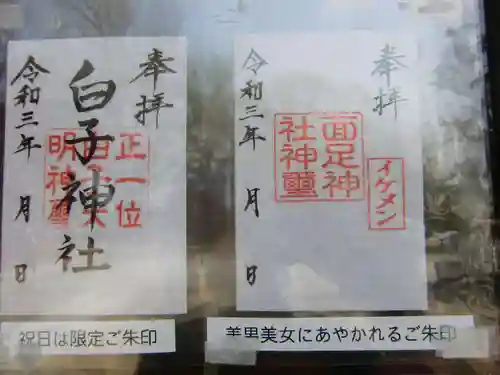 奉拝
正一位
明神璽
白子神社
令和三年　月　日
祝日は限定ご朱印
奉拝
イケメン
面足神
社神璽
令和三年　月　日
美男美女にあやかれるご朱印